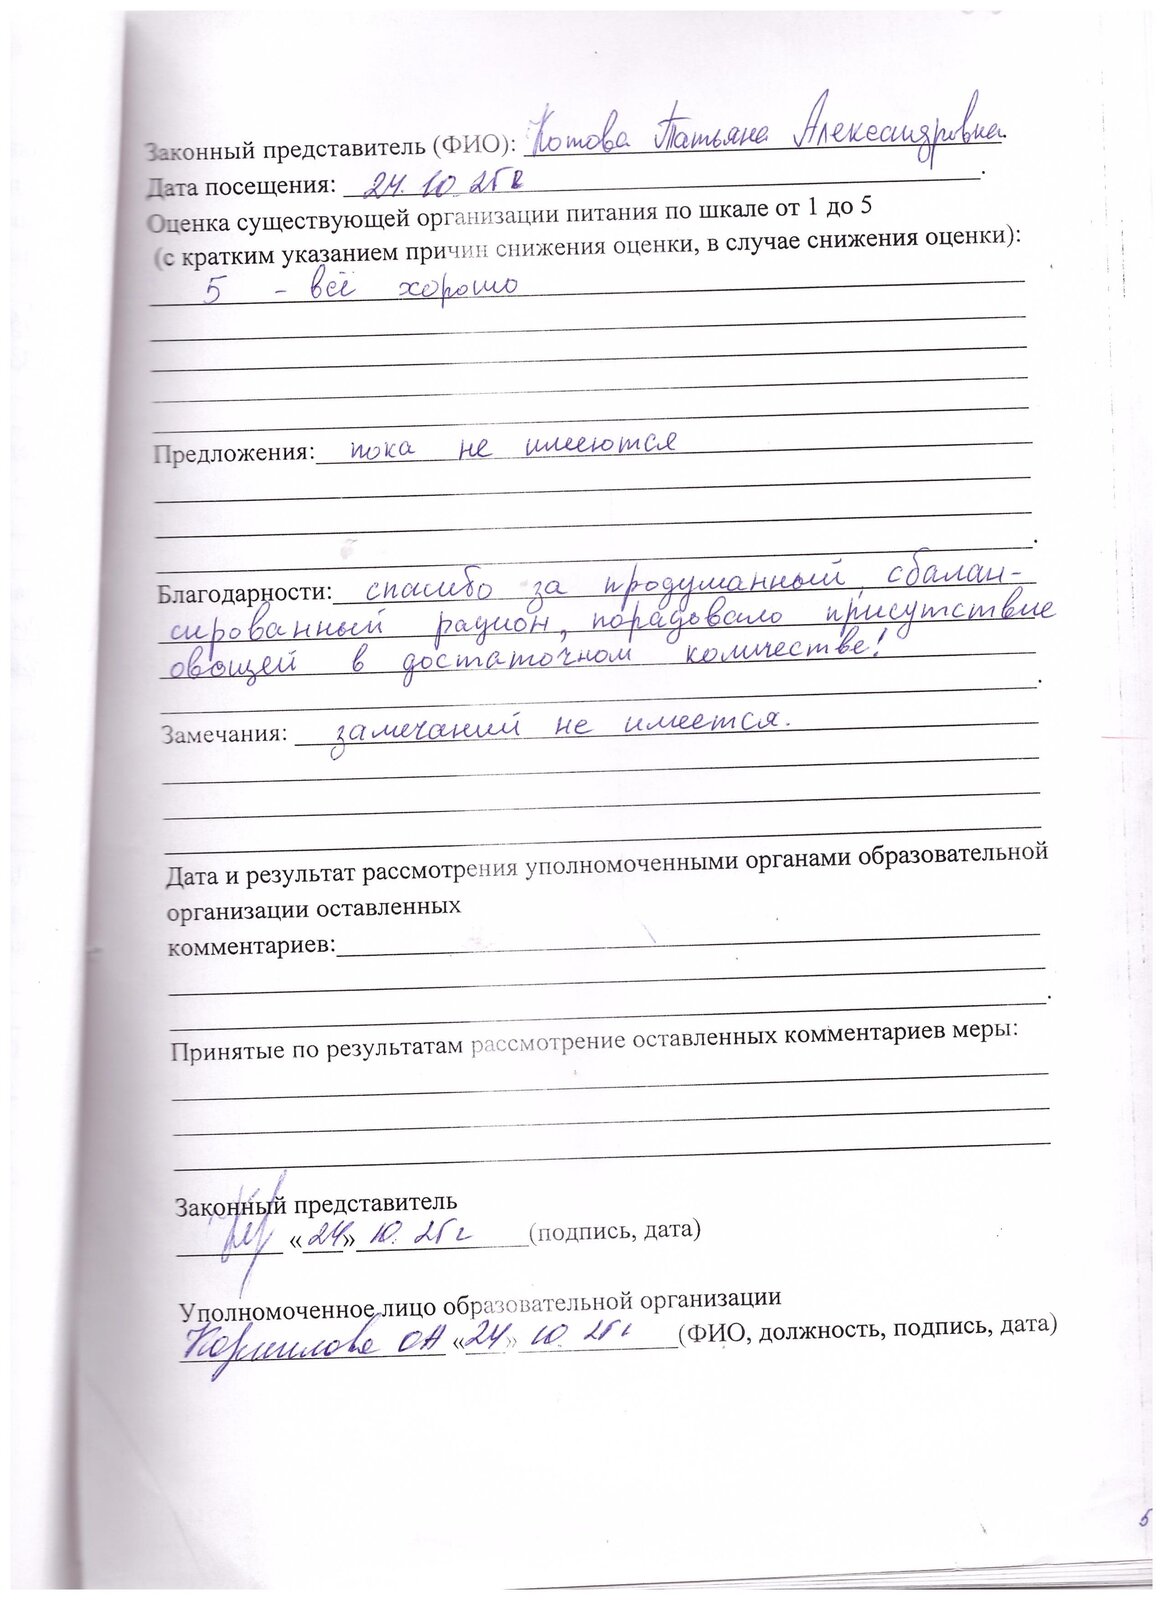 Законный представитель (ФИО): Котова Татьяна Александровна.
Дата посещения: 24.10.25г.
Оценка существующей организации питания по шкале от 1 до 5
(с кратким указанием причин снижения оценки, в случае снижения оценки):
5 - всё хорошо
Предложения: пока не имеются
Благодарности: спасибо за продуманный, сбалан-
сированный рацион, порадовало присутствие
овощей в достаточном количестве!
Замечания: замечаний не имеется.
Дата и результат рассмотрения уполномоченными органами образовательной
организации оставленных
комментариев:
Принятые по результатам рассмотрение оставленных комментариев меры:
Законный представитель
«24» 10. 25г (подпись, дата)
Уполномоченное лицо образовательной организации
Корнилова ОА «24» 10. 25г (ФИО, должность, подпись, дата)
5